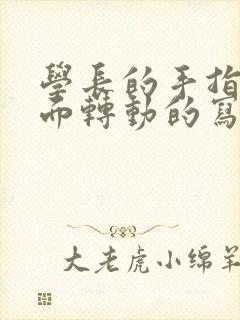 學長的手指
而轉動的寫
大老虎小绵羊